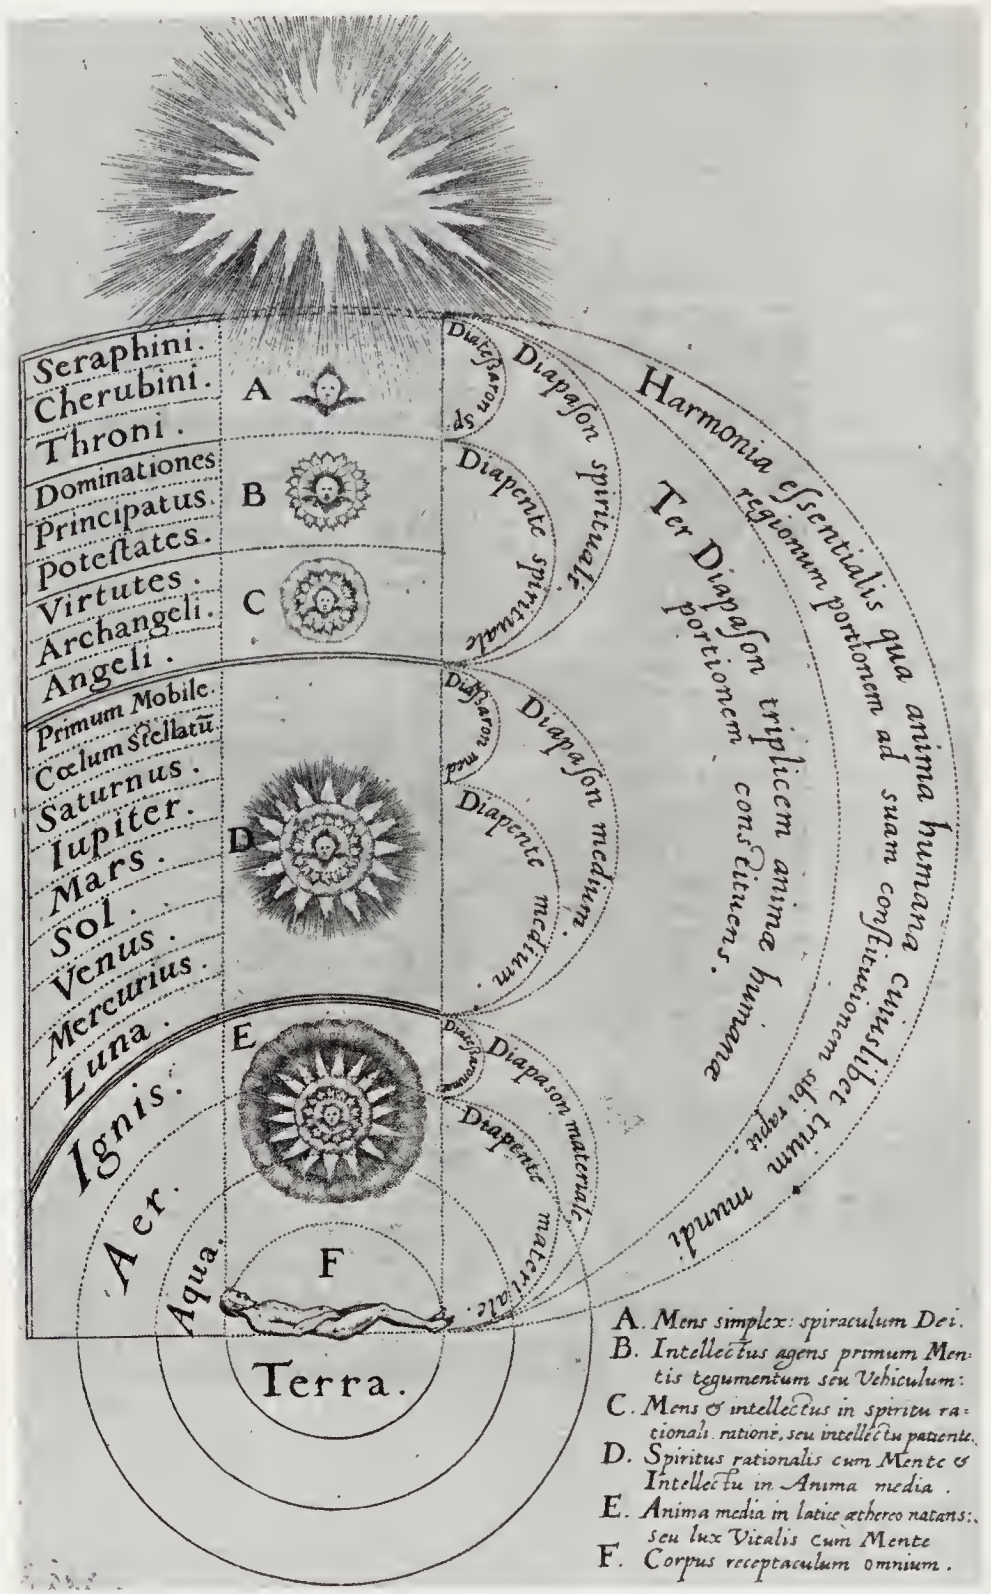 Seraphini.
Cherubini.
Throni.
Dominationes
Principatus.
Poteſtates.
Virtutes.
Archangeli.
Angeli.
Primum Mobile.
Cœlum Stellatū
Saturnus.
Iupiter.
Mars.
Sol.
Venus.
Mercurius.
Luna.
Ignis.
Aer.
Aqua.
Terra.
A
B
C
D
E
F
Diateßaron sp
Diapaſon spirituale.
Diapente spirituale
Diateßaron med
Diapaſon medium.
Diapente medium.
Diapason materiale,
Diapente materiale.
Ter Diapaſon triplicem animæ humanæ
portionem constituens.
Harmonia eſsentialis qua anima humana cuiuslibet trium mundi
regionum portionem ad suam conſtitutionem sibi rapit.
A. Mens simplex: spiraculum Dei.
B. Intellectus agens primum Men=
tis tegumentum seu Vehiculum:
C. Mens & intellectus in spiritu ra=
tionali ratione, seu intellectu patiente.
D. Spiritus rationalis cum Mente &
Intellectu in Anima media.
E. Anima media in latice æthereo natans:
seu lux Vitalis cum Mente
F. Corpus receptaculum omnium.